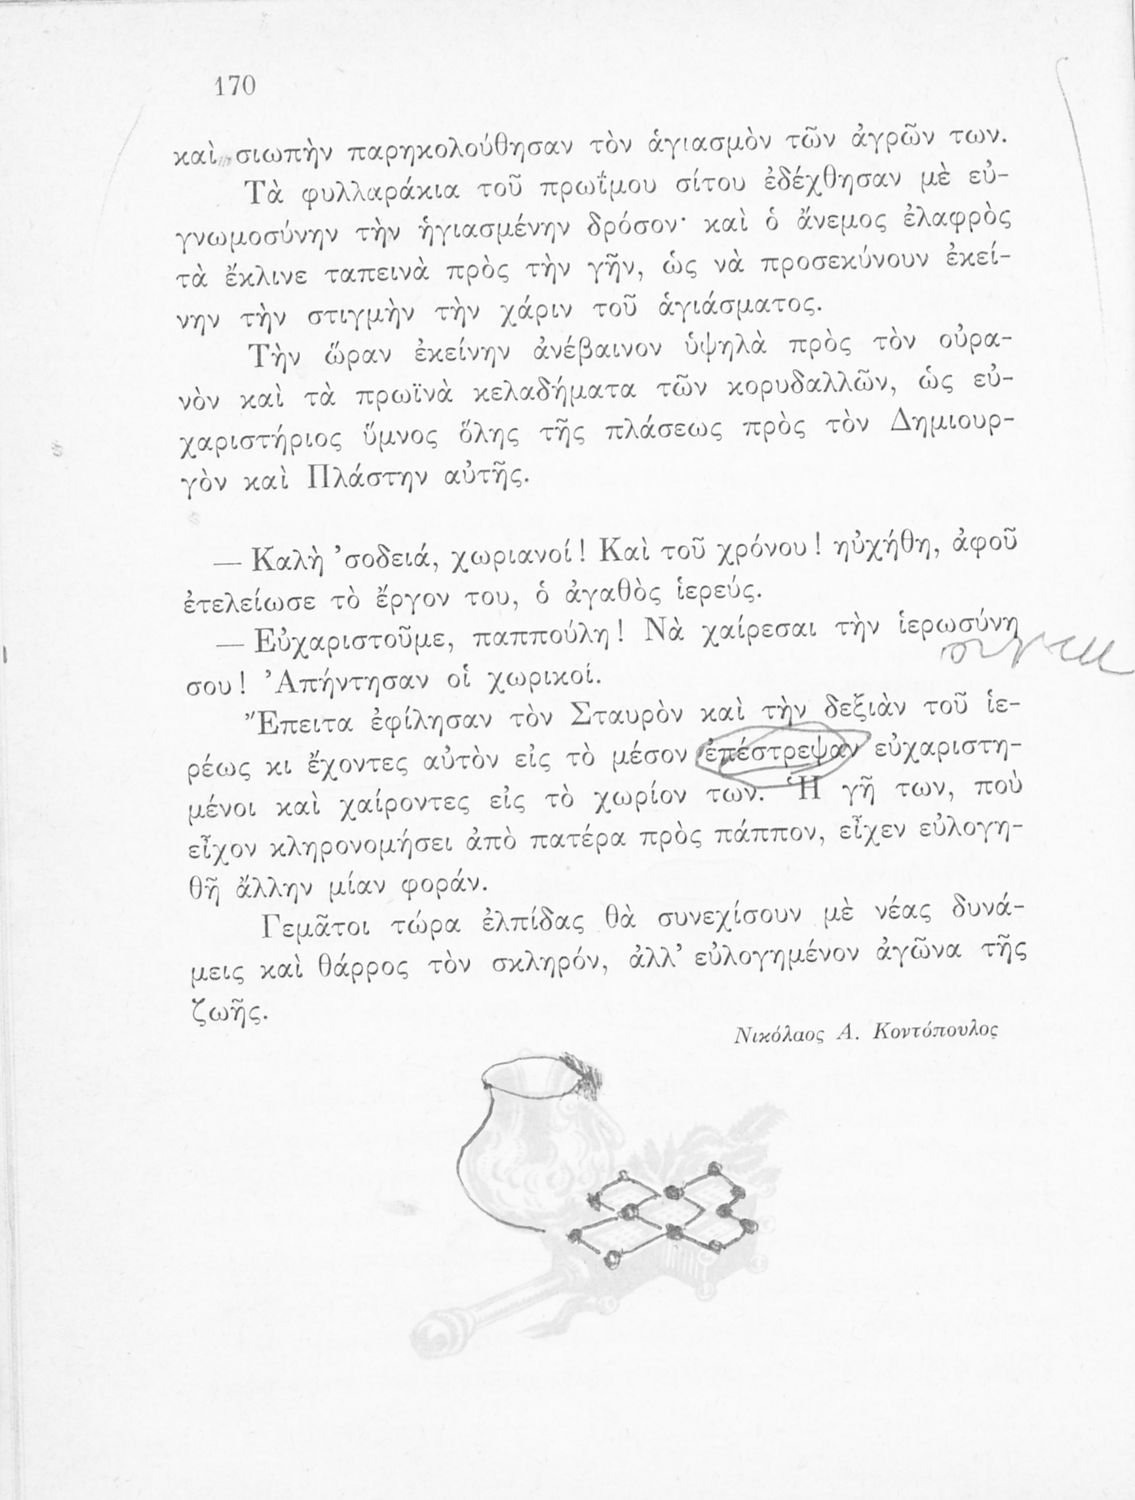 170
καὶ σιωπὴν παρηκολούθησαν τὸν ἁγιασμὸν τῶν ἀγρῶν των.
Τὰ φυλλαράκια τοῦ πρωΐμου σίτου ἐδέχθησαν μὲ εὐ-
γνωμοσύνην τὴν ἡγιασμένην δρόσον· καὶ ὁ ἄνεμος ἐλαφρὸς
τὰ ἔκλινε ταπεινὰ πρὸς τὴν γῆν, ὡς νὰ προσεκύνουν ἐκεί-
νην τὴν στιγμὴν τὴν χάριν τοῦ ἁγιάσματος.
Τὴν ὥραν ἐκείνην ἀνέβαινον ὑψηλὰ πρὸς τὸν οὐρα-
νὸν καὶ τὰ πρωϊνὰ κελαδήματα τῶν κορυδαλλῶν, ὡς εὐ-
χαριστήριος ὕμνος ὅλης τῆς πλάσεως πρὸς τὸν Δημιουρ-
γὸν καὶ Πλάστην αὐτῆς.
— Καλὴ ’σοδειά, χωριανοί! Καὶ τοῦ χρόνου! ηὐχήθη, ἀφοῦ
ἐτελείωσε τὸ ἔργον του, ὁ ἀγαθὸς ἱερεύς.
— Εὐχαριστοῦμε, παππούλη! Νὰ χαίρεσαι τὴν ἱερωσύνη
σου! Ἀπήντησαν οἱ χωρικοί.
Ἔπειτα ἐφίλησαν τὸν Σταυρὸν καὶ τὴν δεξιὰν τοῦ ἱε-
ρέως κι ἔχοντες αὐτὸν εἰς τὸ μέσον ἐπέστρεψαν εὐχαριστη-
μένοι καὶ χαίροντες εἰς τὸ χωρίον των. Ἡ γῆ των, ποὺ
εἶχον κληρονομήσει ἀπὸ πατέρα πρὸς πάππον, εἶχεν εὐλογη-
θῆ ἄλλην μίαν φοράν.
Γεμᾶτοι τώρα ἐλπίδας θὰ συνεχίσουν μὲ νέας δυνά-
μεις καὶ θάρρος τὸν σκληρόν, ἀλλ’ εὐλογημένον ἀγῶνα τῆς
ζωῆς.
Νικόλαος Α. Κοντόπουλος